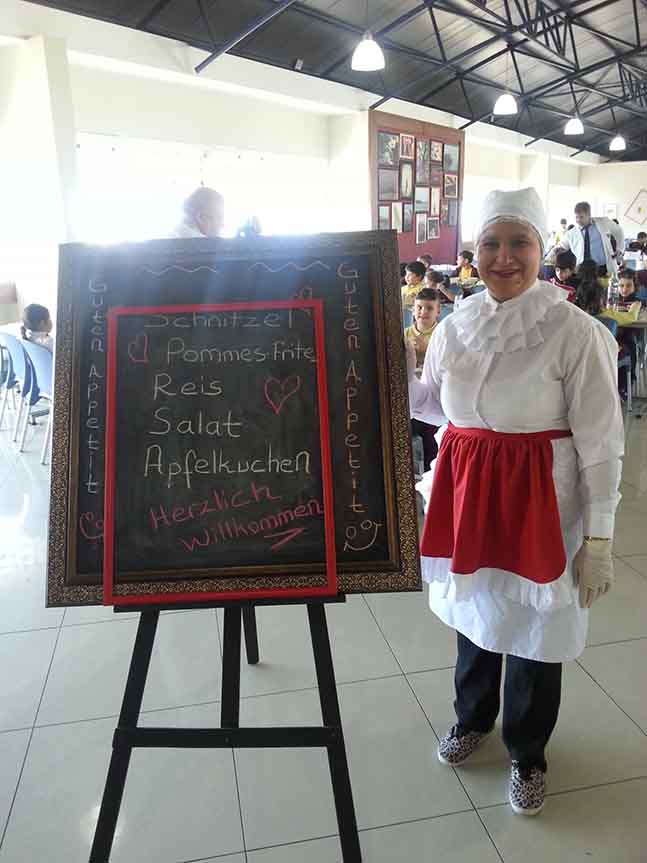 Guten Appetit
Schnitzel
Pommes-Frite
Reis
Salat
Apfelkuchen
Herzlich
Willkommen
Guten Appetit